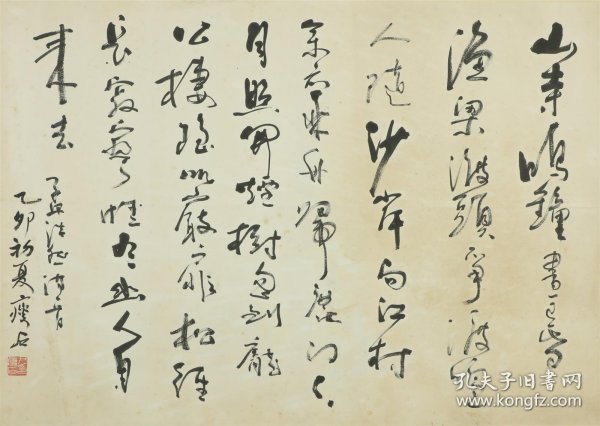 山寺鳴鐘晝已昏
漁梁渡頭爭渡喧
人隨沙岸向江村
余亦乘舟歸鹿門々
月照開煙樹忽到龐
公棲隱處巖扉松徑
長寂寥惟有幽人自
來去
孟浩然詩
乙卯初夏瘦石
孔夫子旧书网
www.kongfz.com